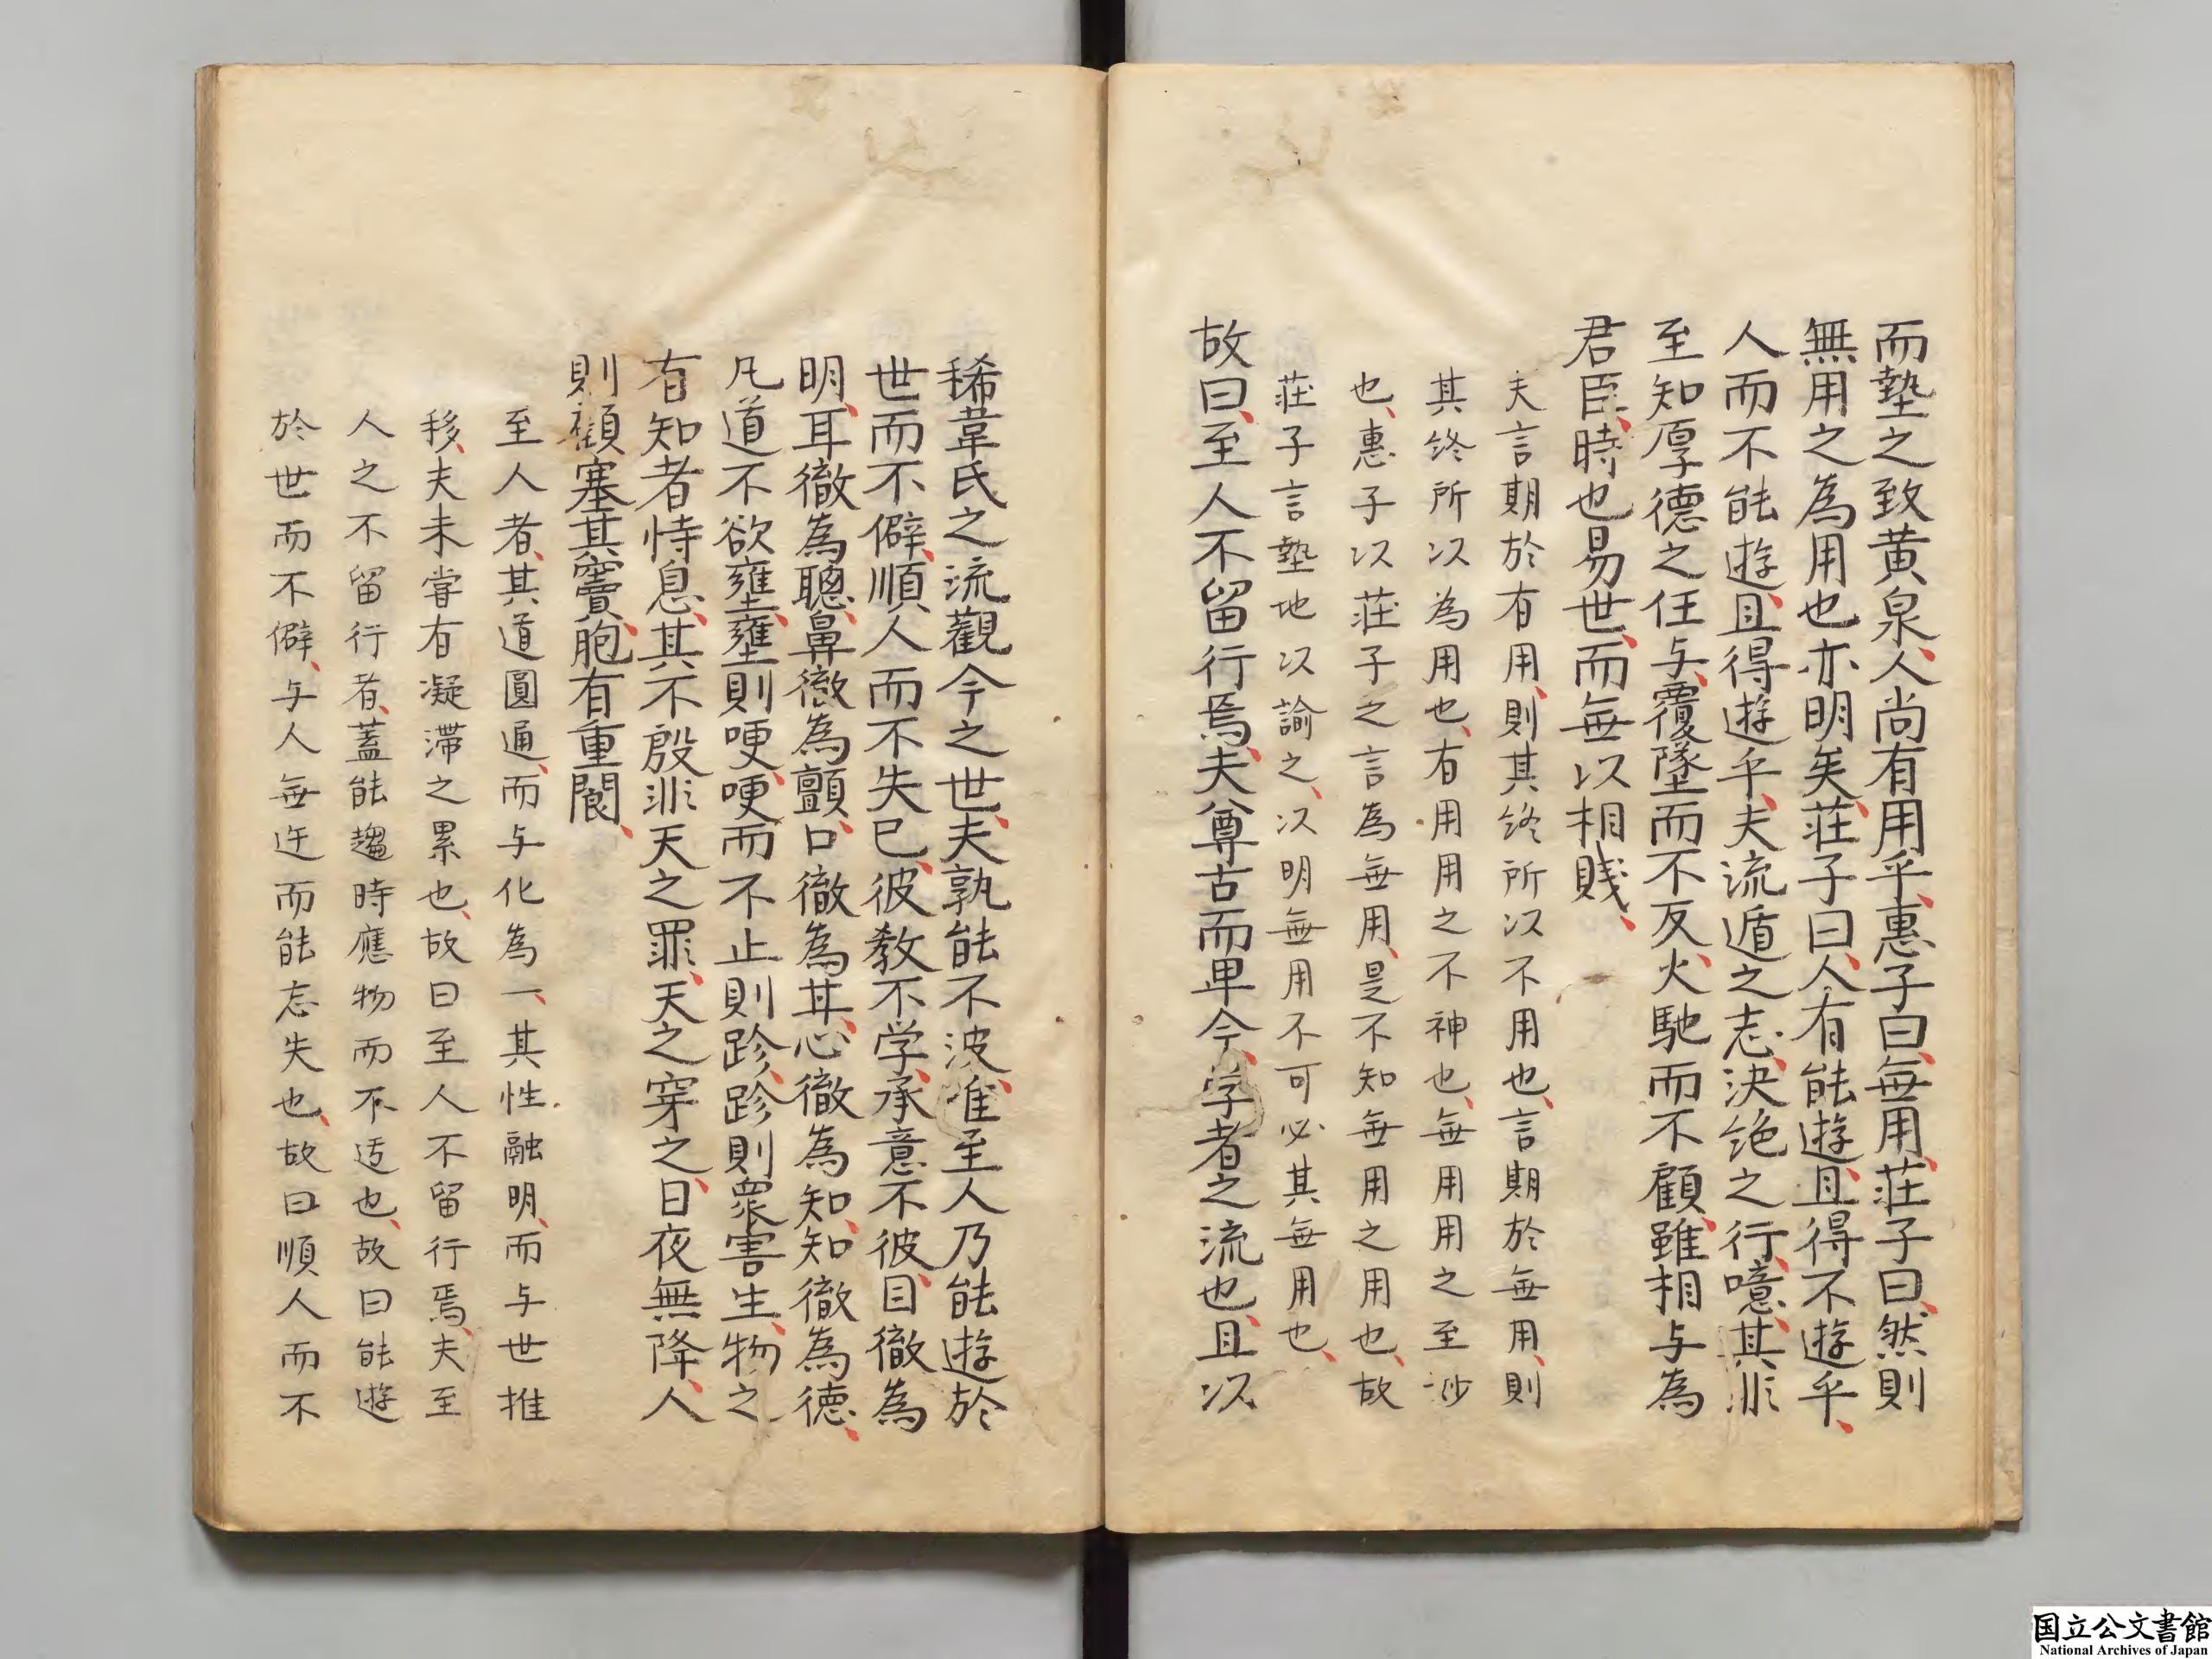 而墊之致黄泉、人尚有用乎、惠子曰、無用、莊子曰、然則
無用之為用也亦明矣、莊子曰、人有能遊、且得不遊乎、
人而不能遊、且得遊乎、夫流遁之志、決絶之行、噫、其非
至知厚德之任与、覆墜而不反、火馳而不顧、雖相与為
君臣、時也易世、而無以相賤、
夫言期於有用、則其終所以不用也、言期於無用、則
其終所以為用也、有用用之不神也、無用用之至妙
也、惠子以莊子之言為無用、是不知無用之用也、故
莊子言墊地以諭之、以明無用不可必其無用也、
故曰、至人不留行焉、夫尊古而卑今、学者之流也、且以
狶韋氏之流觀今之世、夫孰能不波、唯至人乃能遊於
世而不僻、順人而不失已、彼教不学、承意不彼、目徹為
明、耳徹為聰、鼻徹為顫、口徹為甘、心徹為知、知徹為德、
凡道不欲壅、壅則哽、哽而不止則跈、跈則衆害生、物之
有知者恃息、其不殷非天之罪、天之穿之、日夜無降、人
則顧塞其竇、胞有重閬、
至人者、其道圓通、而与化為一、其性融明、而与世推
移、夫未甞有凝滯之累也、故曰至人不留行焉、夫至
人之不留行者、蓋能趨時應物而不适也、故曰能遊
於世而不僻、与人無迕而能忘失也、故曰順人而不
国立公文書館
National Archives of Japan